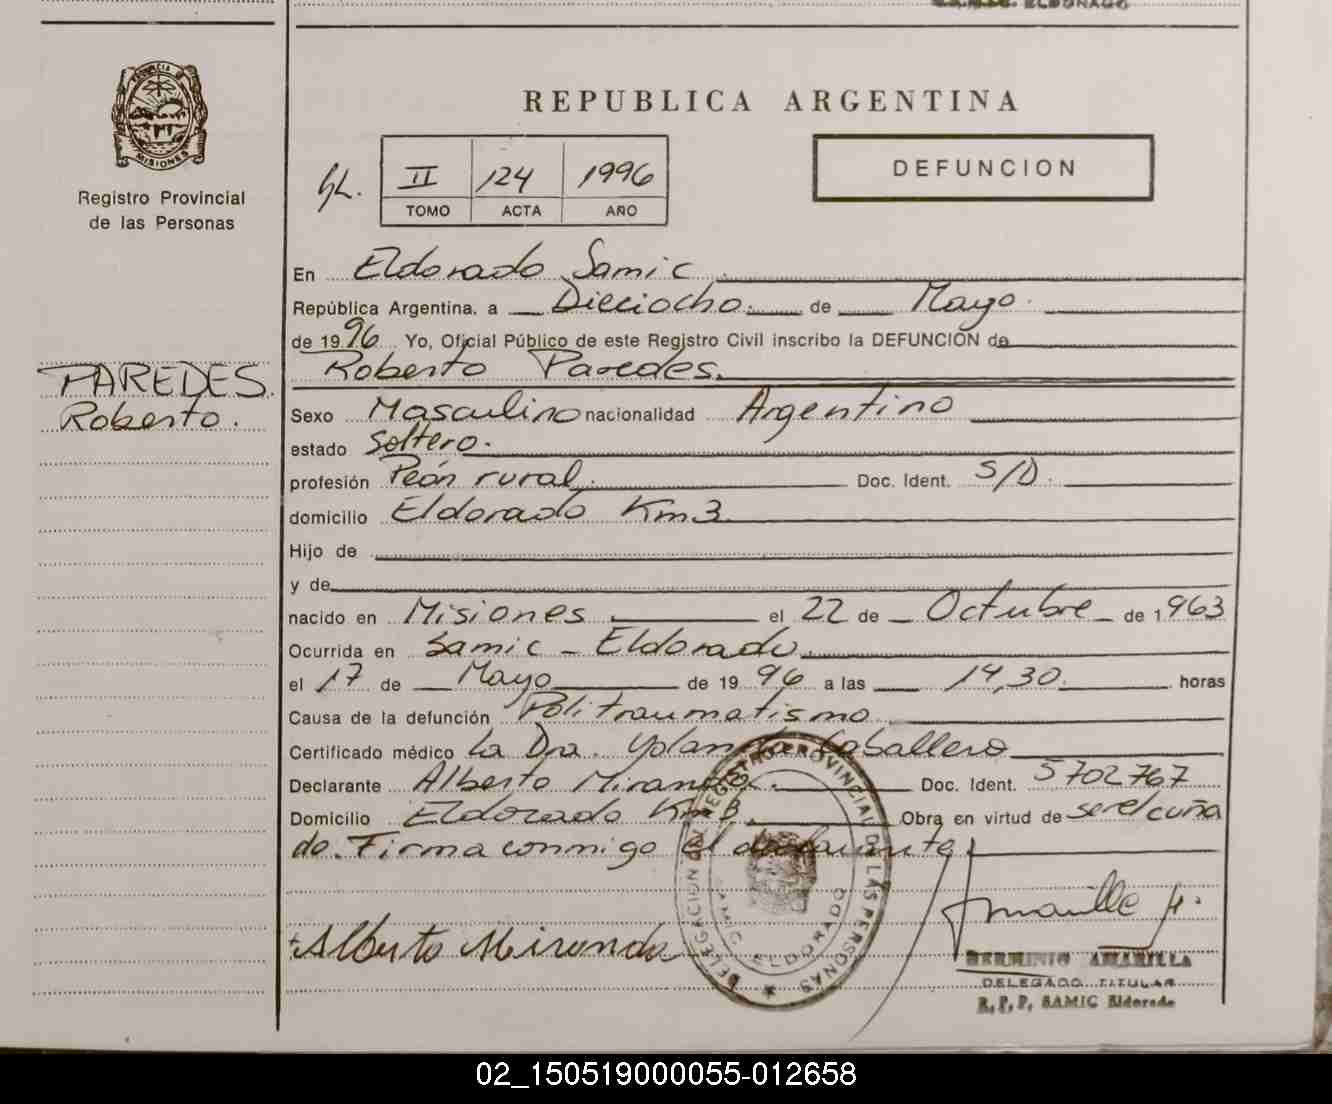 S.A.M.I.C. ELDORADO
PROVINCIA DE
MISIONES
Registro Provincial
de las Personas
REPUBLICA ARGENTINA
DEFUNCION
II 124 1996
TOMO ACTA AÑO
En Eldorado Samic
República Argentina, a Dieciocho de Mayo
de 1996 Yo, Oficial Público de este Registro Civil inscribo la DEFUNCION de
Roberto Paredes.
PAREDES.
Roberto.
Sexo Masculino nacionalidad Argentino
estado Soltero.
profesión Peón rural. Doc. Ident. S/D.
domicilio Eldorado Km3
Hijo de
y de
nacido en Misiones el 22 de Octubre de 1963
Ocurrida en Samic - Eldorado.
el 17 de Mayo de 1996 a las 14,30 horas
Causa de la defunción Politraumatismo
Certificado médico La Dra. Yolanda Caballero
Declarante Alberto Miranda. Doc. Ident. 5702767
Domicilio Eldorado Km 3. Obra en virtud de ser el cuña
do. Firma conmigo el declarante
DELEGACION DEL REGISTRO PROVINCIAL DE LAS PERSONAS
SAMIC ELDORADO
Alberto Miranda
HERMINIO AMARILLA
DELEGADO TITULAR
R.P.P. SAMIC Eldorado
02_150519000055-012658